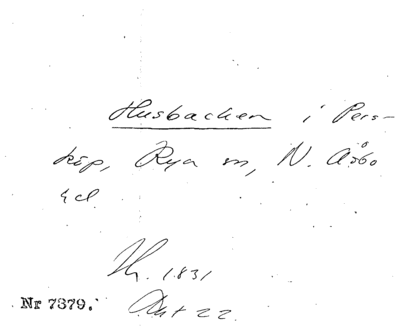 Husbacken i Pers-
köp, Rya sn, N. Åsbo
hd.
Th. 1831
Akt 22
Nr 7379.